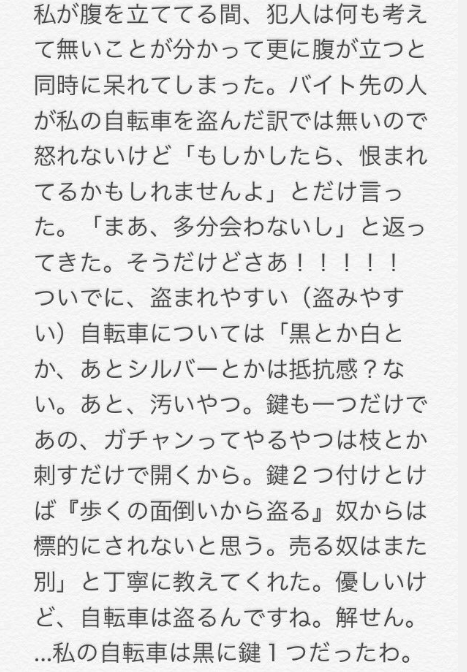 私が腹を立ててる間、犯人は何も考え
て無いことが分かって更に腹が立つと
同時に呆れてしまった。バイト先の人
が私の自転車を盗んだ訳では無いので
怒れないけど「もしかしたら、恨まれ
てるかもしれませんよ」とだけ言っ
た。「まあ、多分会わないし」と返っ
てきた。そうだけどさあ！！！！！
ついでに、盗まれやすい（盗みやす
い）自転車については「黒とか白と
か、あとシルバーとかは抵抗感？な
い。あと、汚いやつ。鍵も一つだけで
あの、ガチャンってやるやつは枝とか
刺すだけで開くから。鍵２つ付けとけ
ば『歩くの面倒いから盗る』奴からは
標的にされないと思う。売る奴はまた
別」と丁寧に教えてくれた。優しいけ
ど、自転車は盗るんですね。解せん。
...私の自転車は黒に鍵１つだったわ。